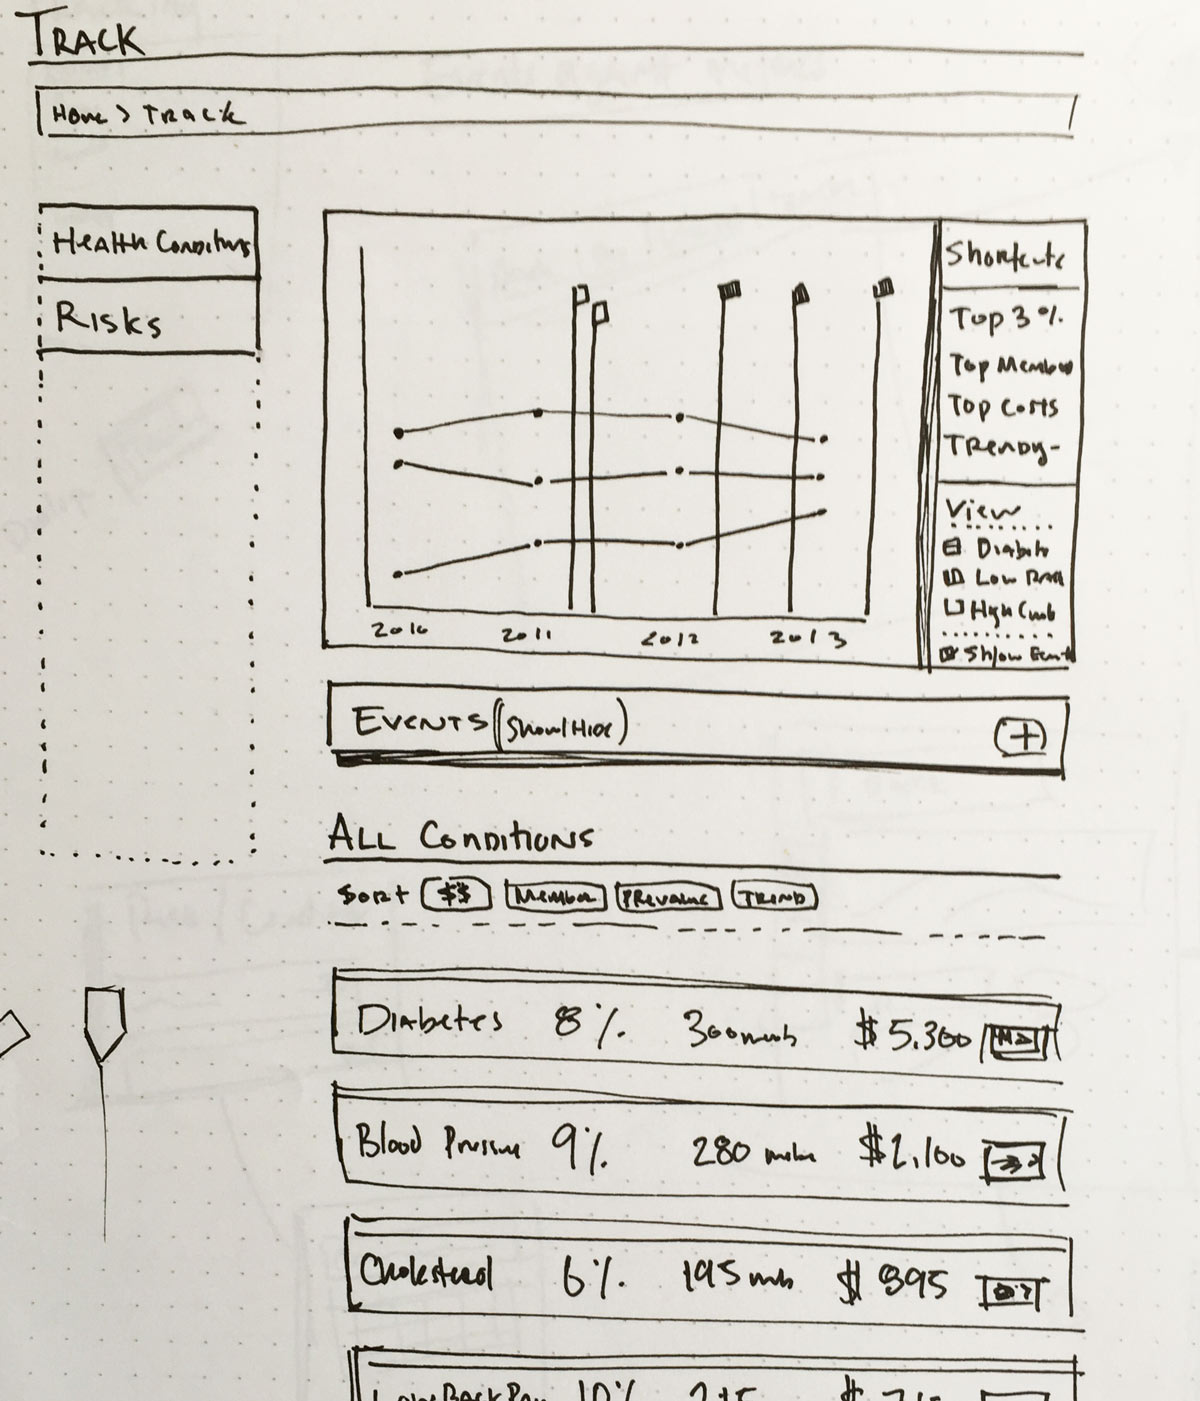 TRACK
Home > Track
Health Conditions
Risks
2010 2011 2012 2013
Shortcuts
Top 3%
Top Members
Top Costs
View
Diabets
Low Back
High
Show Event
EVENTS (Show/Hide)
+
ALL CONDITIONS
Sort $$ Member TREND
Diabetes 8% 300 memb $5,300
Blood Pressure 9% 280 $2,100
Cholesterol 6% 195 mb $895
Low Back Pain 10%